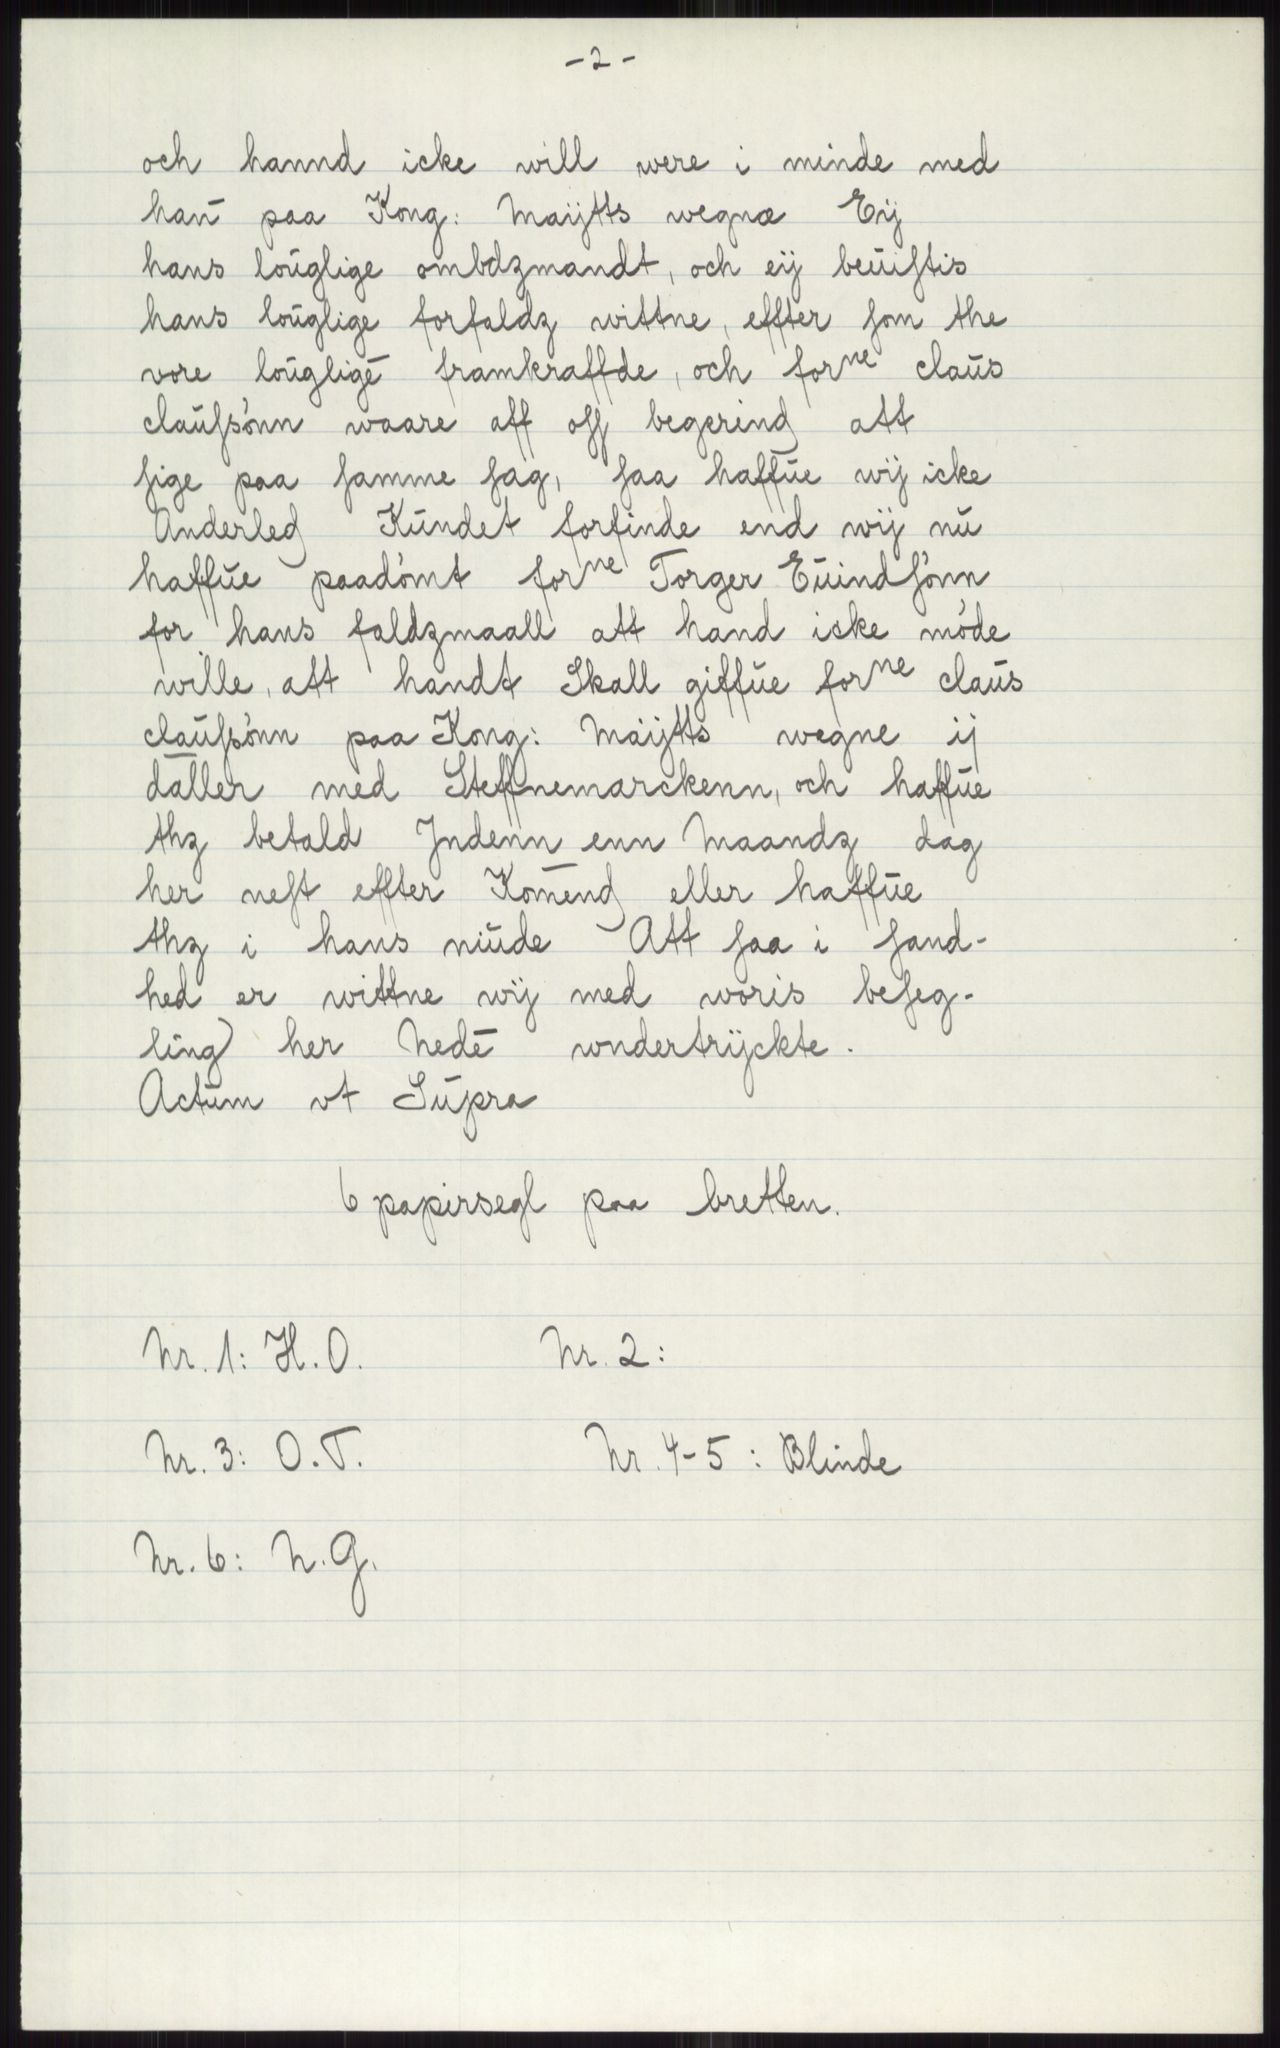 -2-
och hannd icke will were i minde med
han̄ paa Kong: Maijtts wegnæ Eij
hans loŭglige ombdzmandt, och eij beŭiſtis
hans loŭglige forfaldz wittne, effter ſom the
vore loŭgligē framkraffde, och forⁿᵉ claŭs
claŭſsönn waare aff oſſ begering att
ſige paa ſamme ſag, ſaa haffŭe wij icke
Anderled Kŭndet forfinde end wij nŭ
haffŭe paadömt forⁿᵉ Torger Eŭindſönn
for hans faldzmaall att hand icke möde
wille, att handt Skall giffŭe forⁿᵉ claŭs
claŭſsönn paa Kong: Maijtts wegne ij
dāller med Steffnemarckenn, och haffŭe
thz betald Jndenn enn Maandz dag
her neſt effter Kom̄end eller haffŭe
thz i hans miŭde Att ſaa i ſand-
hed er wittne wij med woris beſeg-
ling her Nedē wndertrijckte.
Actŭm vt Sŭpra
6 papirsegl paa bretten.
Nr. 1: H. O. Nr. 2:
Nr. 3: O. T. Nr. 4-5: Blinde
Nr. 6: N. G.